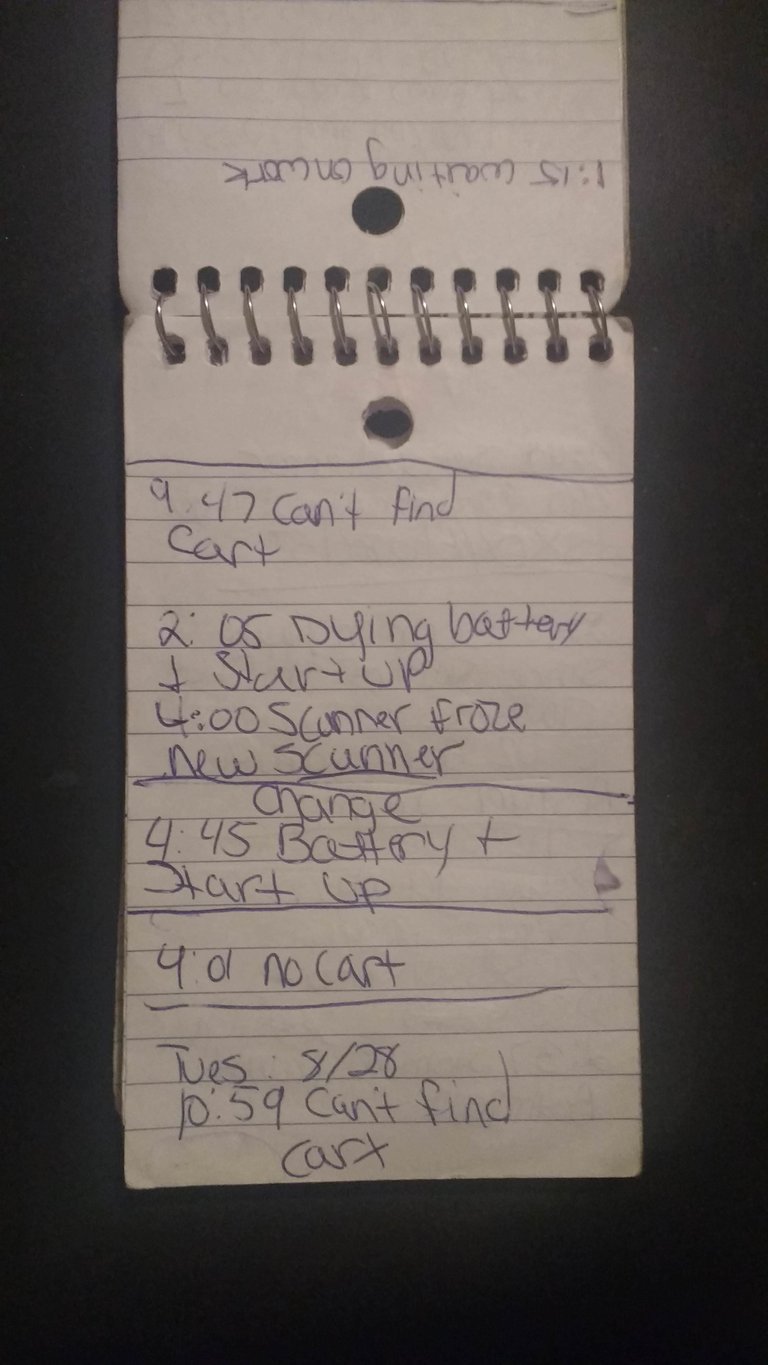 1:15 waiting on work
9:47 Can't find
Cart
2:05 Dying battery
+ Start up
4:00 Scanner froze
new Scanner
change
4:45 Battery +
Start up
4:01 no cart
Tues: 8/28
10:59 Can't find
cart